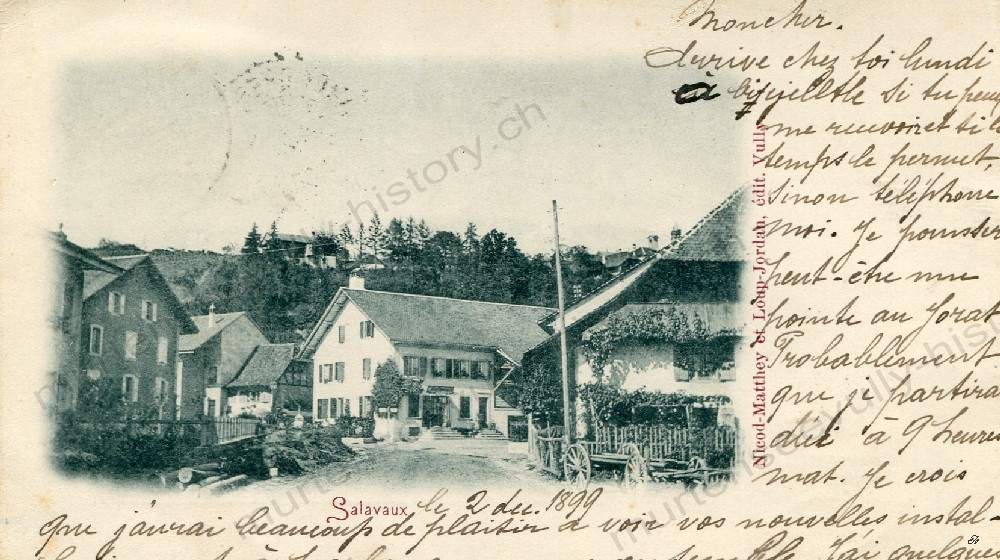 Mon cher.
J'arrive chez toi lundi
à bicyclette si tu peux
me recevoir et si le
temps le permet,
sinon téléphone
moi. Je pousserai
peut-être une
pointe au Jorat
Probablement
que je partirai
d'ici à 9 heures
mat. Je crois
Nicod-Matthey et Loup-Jordan, édit. Vully
Salavaux, le 2 déc. 1899
que j'aurai beaucoup de plaisir à voir vos nouvelles instal-
J'ai quelques
murtensee.vully.history.ch